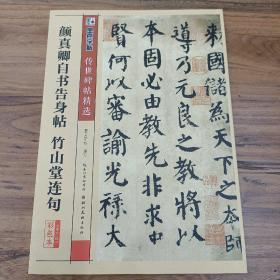 敕國儲為天下之本師
導乃元良之教將以
本固必由教先非求忠
賢何以審諭光祿大
传世碑帖精选
颜真卿自书告身帖 竹山堂连句
彩色本